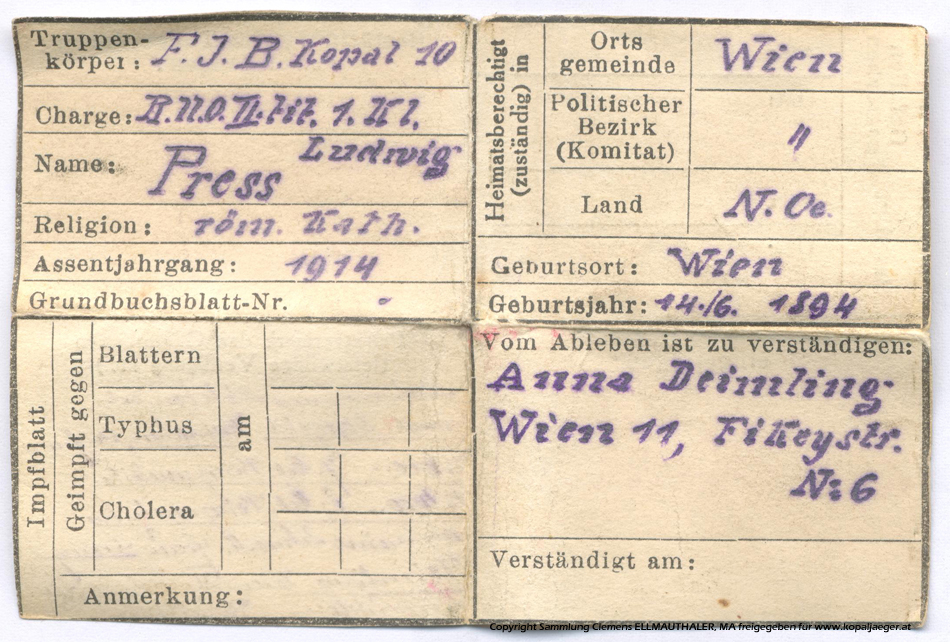 Truppen-
körper: F. J. B. Kopal 10
Charge: R.U.O. II. tit. 1. Kl.
Name: Press Ludwig
Religion: röm. Kath.
Assentjahrgang: 1914
Grundbuchsblatt-Nr. -
Heimatsberechtigt
(zuständig) in
Orts
gemeinde Wien
Politischer
Bezirk
(Komitat) "
Land N. Oe.
Geburtsort: Wien
Geburtsjahr: 14./6. 1894
Impfblatt
Geimpft gegen
Blattern
Typhus
Cholera
am
Anmerkung:
Vom Ableben ist zu verständigen:
Anna Deimling
Wien 11, Fikeystr.
N: 6
Verständigt am:
Copyright Sammlung Clemens ELLMAUTHALER, MA freigegeben für www.kopaljaeger.at